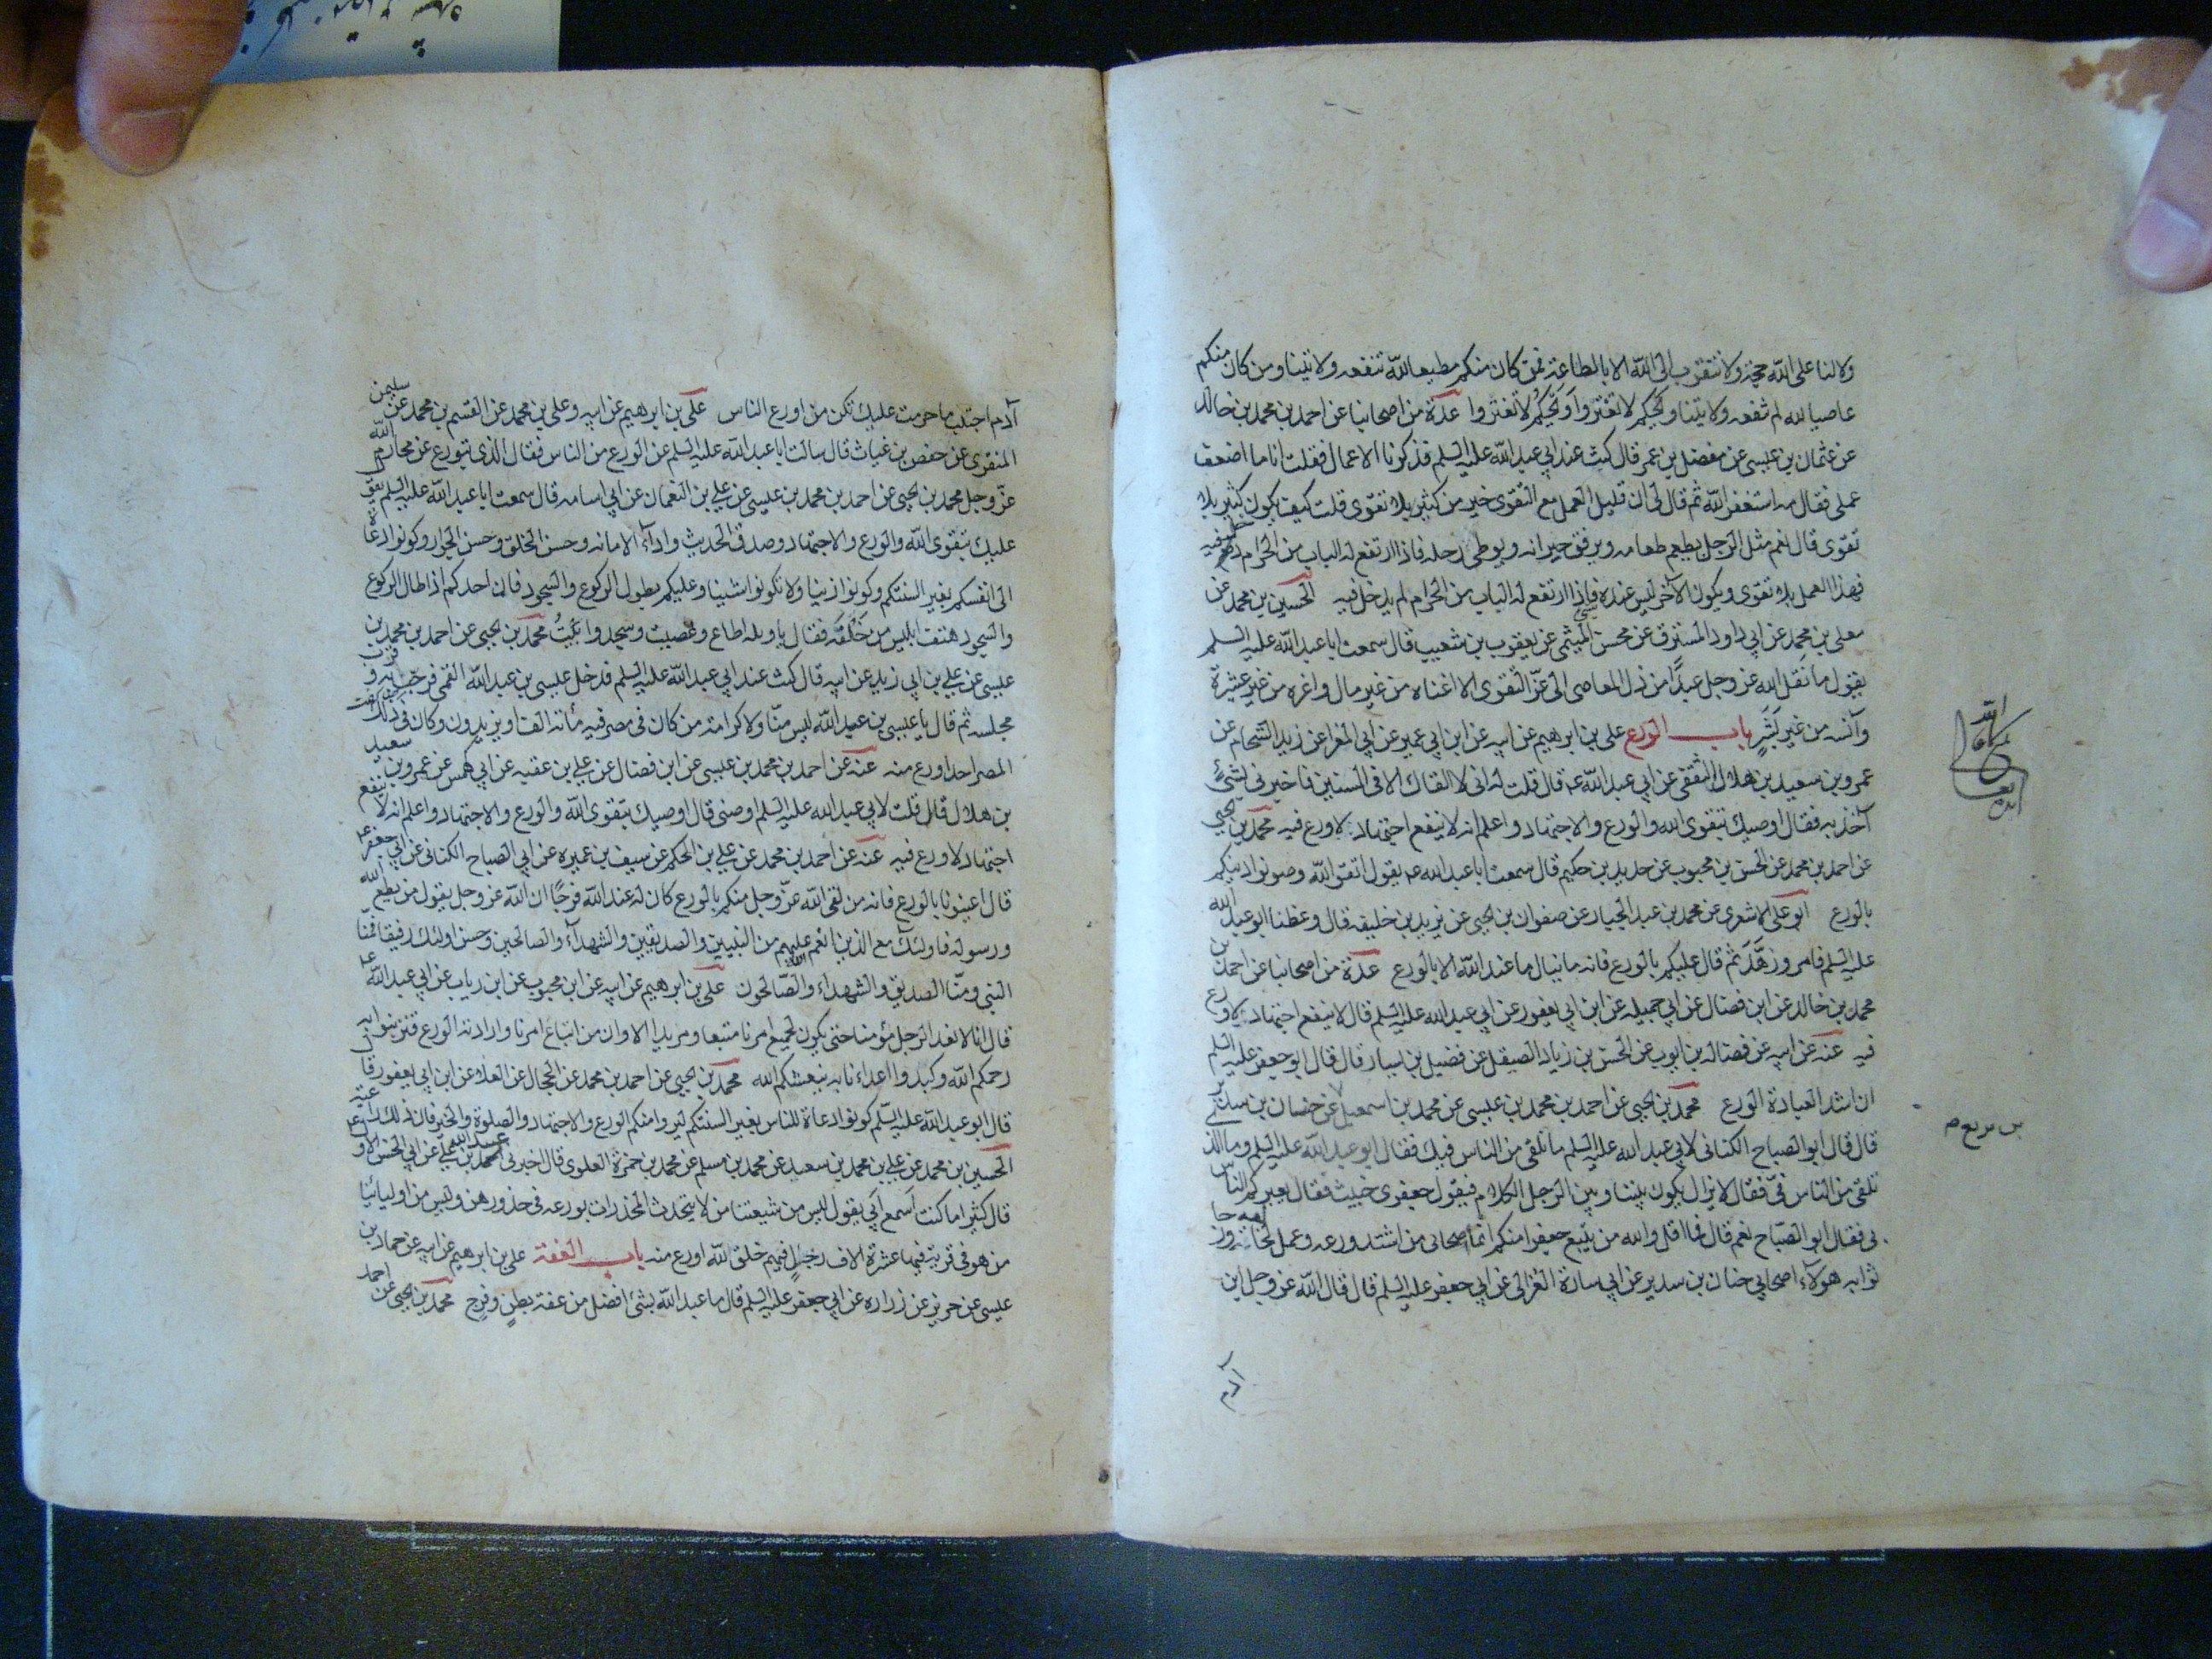 ولا لنا على الله حجة ولا نتقرب الى الله الا بالطاعة فمن كان منكم مطيعا لله تنفعه ولايتنا ومن كان منكم
عاصيا لله لم تنفعه ولايتنا ويحكم لا تغتروا ويحكم لا تغتروا عدة من اصحابنا عن احمد بن محمد بن خالد
عن عثمان بن عيسى عن مفضل بن عمر قال كنت عند ابي عبد الله عليه السلم فذكرنا الاعمال فقلت انا ما اضعف
عملى فقال مه استغفر الله ثم قال لى ان قليل العمل مع التقوى خير من كثير بلا تقوى قلت كيف يكون كثير بلا
تقوى قال نعم مثل الرجل يطعم طعامه ويرفق جيرانه ويوطى رحله فاذا ارتفع له الباب من الحرام دخل فيه
فهذا العمل بلا تقوى ويكون الاخر ليس عنده فاذا ارتفع له الباب من الحرام لم يدخل فيه الحسين بن محمد عن
معلى بن محمد عن ابي داود المسترق عن محسن الميثمى عن يعقوب بن شعيب قال سمعت ابا عبد الله عليه السلم
يقول ما نقل الله عز وجل عبدا من ذل المعاصى الى عز التقوى الا اغناه من غير مال واعزه من غير عشيرة
وآنسه من غير بشر باب الورع على بن ابرهيم عن ابيه عن ابن ابي عمير عن ابي المغرا عن زيد الشحام عن
عمرو بن سعيد بن هلال الثقفى عن ابي عبد الله عه قال قلت له انى لا القاك الا فى السنين فاخبرنى بشئ
آخذ به فقال اوصيك بتقوى الله والورع والاجتهاد واعلم انه لا ينفع اجتهاد لا ورع فيه محمد بن يحيى
عن احمد بن محمد عن الحسن بن محبوب عن حديد بن حكيم قال سمعت ابا عبد الله عه يقول اتقوا الله وصونوا دينكم
بالورع ابو على الاشعرى عن محمد بن عبد الجبار عن صفوان بن يحيى عن يزيد بن خليفه قال وعظنا ابو عبد الله
عليه السلم فامر وزهد ثم قال عليكم بالورع فانه ما ينال ما عند الله الا بالورع عدة من اصحابنا عن احمد بن
محمد بن خالد عن ابن فضال عن ابي جميله عن ابن ابي يعفور عن ابي عبد الله عليه السلم قال لا ينفع اجتهاد لا ورع
فيه عنه عن ابيه عن فضاله بن ايوب عن الحسن بن زياد الصيقل عن فضيل بن يسار قال قال ابو جعفر عليه السلم
ان اشد العبادة الورع محمد بن يحيى عن احمد بن محمد بن عيسى عن محمد بن اسمعيل عن حنان بن سدير
قال قال ابو الصباح الكنانى لابي عبد الله عليه السلم ما نلقى من الناس فيك فقال ابو عبد الله عليه السلم وما الذ
تلقى من الناس فى فقال لا يزال يكون بيننا وبين الرجل الكلام فيقول جعفرى خبيث فقال يعيركم الناس
بى فقال ابو الصباح نعم قال فما اقل والله من يتبع جعفرا منكم انما اصحابى من اشتد ورعه وعمل لخالقه ورجا
ثوابه هولاء اصحابي حنان بن سدير عن ابي سارة الغزالى عن ابي جعفر عليه السلم قال قال الله عز وجل ابن
آدم
آدم اجتنب ما حرمت عليك تكن من اورع الناس على بن ابرهيم عن ابيه وعلى بن محمد عن القسم بن محمد عن سليمن
المنقرى عن حفص بن غياث قال سالت ابا عبد الله عليه السلم عن الورع من الناس فقال الذى يتورع عن محارم الله
عز وجل محمد بن يحيى عن احمد بن محمد بن عيسى عن على بن النعمان عن ابي اسامه قال سمعت ابا عبد الله عليه السلم يقول
عليك بتقوى الله والورع والاجتهاد وصدق الحديث واداء الامانه وحسن الخلق وحسن الجوار وكونوا دعاة
الى انفسكم بغير السنتكم وكونوا زينا ولا تكونوا شينا وعليكم بطول الركوع والسجود فان احدكم اذا طال الركوع
والسجود هتف ابليس من خلفه فقال يا ويله اطاع وعصيت وسجد وابيت محمد بن يحيى عن احمد بن محمد بن
عيسى عن على بن ابي زيد عن ابيه قال كنت عند ابي عبد الله عليه السلم فدخل عيسى بن عبد الله القمى فرحب به وقرب
مجلسه ثم قال يا عيسى بن عبد الله ليس منا ولا كرامة من كان فى مصر فيه مائة الف او يزيدون وكان فى ذلك
المصر احد اورع منه عنه عن احمد بن محمد بن عيسى عن ابن فضال عن على بن عقبه عن ابي كهمس عن عمرو بن سعيد
بن هلال قال قلت لابي عبد الله عليه السلم اوصنى قال اوصيك بتقوى الله والورع والاجتهاد واعلم انه لا ينفع
اجتهاد لا ورع فيه عنه عن احمد بن محمد عن على بن الحكم عن سيف بن عميره عن ابي الصباح الكنانى عن ابي جعفر عه
قال اعينونا بالورع فانه من لقى الله عز وجل منكم بالورع كان له عند الله فرجا ان الله عز وجل يقول من يطع الله
ورسوله فاولئك مع الذين انعم الله عليهم من النبيين والصديقين والشهداء والصالحين وحسن اولئك رفيقا فمنا
النبى ومنا الصديق والشهداء والصالحون على بن ابرهيم عن ابيه عن ابن محبوب عن ابن رياب عن ابي عبد الله عه
قال انا لا نعد الرجل مؤمنا حتى يكون لجميع امرنا متبعا ومريدا الا وان من اتباع امرنا وارادته الورع فتزينوا به
رحمكم الله وكيدوا اعداءنا به ينعشكم الله محمد بن يحيى عن احمد بن محمد عن الحجال عن العلاء عن ابن ابي يعفور قال
قال ابو عبد الله عليه السلم كونوا دعاة للناس بغير السنتكم ليروا منكم الورع والاجتهاد والصلوة والخير فان ذلك داعية
الحسين بن محمد عن على بن محمد بن سعيد عن محمد بن مسلم عن محمد بن حمزة العلوى قال اخبرنى عبيد الله بن على عن ابي الحسن الاول عه
قال كثيرا ما كنت اسمع ابي يقول ليس من شيعتنا من لا يتحدث المخدرات بورعه فى خدورهن وليس من اوليائنا
من هو فى قرية فيها عشرة الاف رجل فيهم خلق لله اورع منه باب العفة على بن ابرهيم عن ابيه عن حماد بن
عيسى عن حريز عن زراره عن ابي جعفر عليه السلم قال ما عبد الله بشئ افضل من عفة بطن وفرج محمد بن يحيى عن احمد